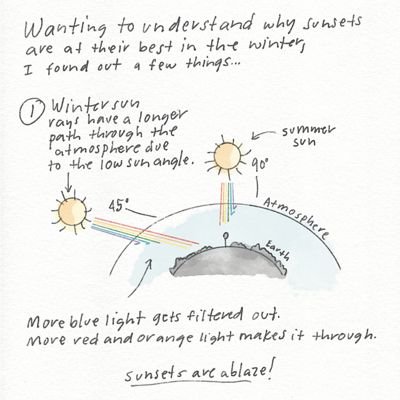 Wanting to understand why sunsets
are at their best in the winter,
I found out a few things...
① Winter sun
rays have a longer
path through the
atmosphere due
to the low sun angle.
summer
sun
90°
45°
Atmosphere
Earth
More blue light gets filtered out.
More red and orange light makes it through.
sunsets are ablaze!